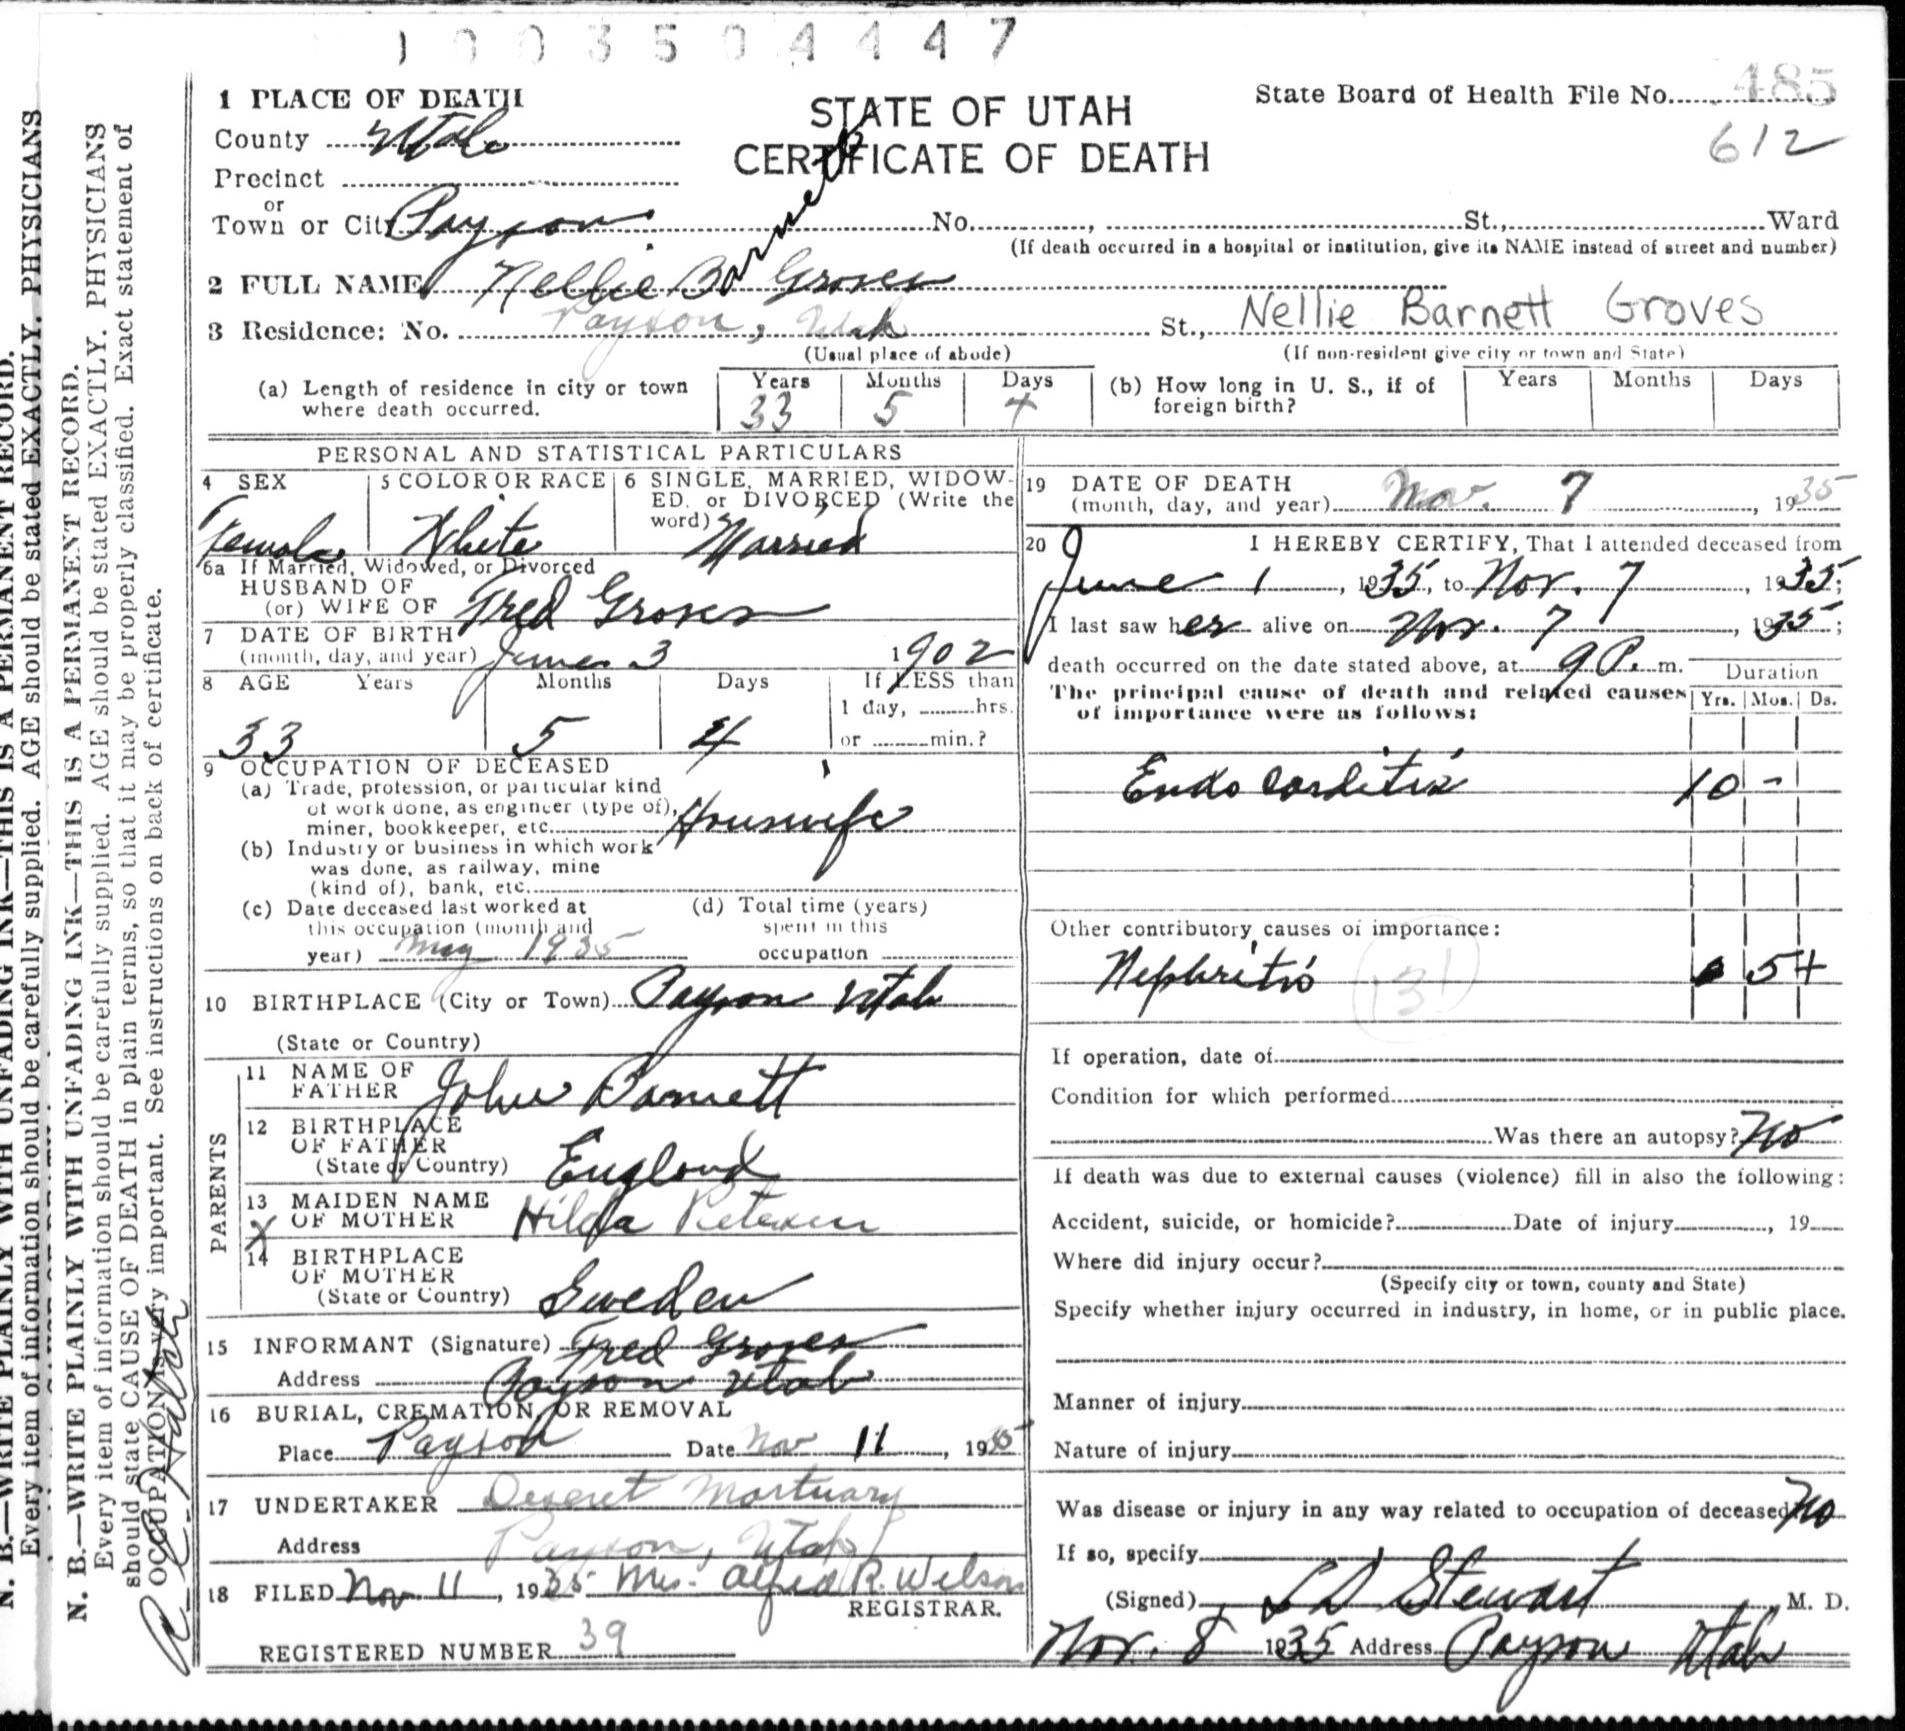 1003504447
1 PLACE OF DEATH
STATE OF UTAH
CERTIFICATE OF DEATH
State Board of Health File No. 485
612
County Utah
Precinct
or
Town or City Payson No. , St., Ward
(If death occurred in a hospital or institution, give its NAME instead of street and number)
2 FULL NAME Nellie Barnett Groves
3 Residence: No. Payson, Utah St., Nellie Barnett Groves
(Usual place of abode) (If non-resident give city or town and State)
(a) Length of residence in city or town where death occurred. Years 33 Months 5 Days 4
(b) How long in U. S., if of foreign birth? Years Months Days
PERSONAL AND STATISTICAL PARTICULARS
4 SEX Female
5 COLOR OR RACE White
6 SINGLE, MARRIED, WIDOW-
ED. or DIVORCED (Write the
word) Married
6a If Married, Widowed, or Divorced
HUSBAND OF
(or) WIFE OF Fred Groves
7 DATE OF BIRTH
(month, day, and year) June 3 1902
8 AGE Years Months Days If LESS than
1 day, hrs.
33 5 4 or min.?
9 OCCUPATION OF DECEASED
(a) Trade, profession, or particular kind
of work done, as engineer (type of),
miner, bookkeeper, etc. Housewife
(b) Industry or business in which work
was done, as railway, mine
(kind of), bank, etc.
(c) Date deceased last worked at
this occupation (month and
year) May 1935
(d) Total time (years)
spent in this
occupation
10 BIRTHPLACE (City or Town) Payson Utah
(State or Country)
PARENTS
11 NAME OF
FATHER John Barnett
12 BIRTHPLACE
OF FATHER
(State or Country) England
13 MAIDEN NAME
X OF MOTHER Hilda Petersen
14 BIRTHPLACE
OF MOTHER
(State or Country) Sweden
15 INFORMANT (Signature) Fred Groves
Address Payson Utah
16 BURIAL, CREMATION, OR REMOVAL
Place Payson Date Nov 11, 1935
17 UNDERTAKER Deseret Mortuary
Address Payson, Utah
18 FILED Nov. 11, 1935 Mrs. Alfred R. Wilson
REGISTRAR.
REGISTERED NUMBER 39
19 DATE OF DEATH
(month, day, and year) Nov. 7, 1935
20 I HEREBY CERTIFY, That I attended deceased from
June 1, 1935, to Nov. 7, 1935;
I last saw her alive on Nov. 7, 1935;
death occurred on the date stated above, at 9 P. m.
Duration
The principal cause of death and related causes
of importance were as follows:
Yrs. Mos. Ds.
Endocarditis 10 -
Other contributory causes of importance:
Nephritis 131 5 4
If operation, date of
Condition for which performed
Was there an autopsy? No
If death was due to external causes (violence) fill in also the following:
Accident, suicide, or homicide? Date of injury , 19
Where did injury occur?
(Specify city or town, county and State)
Specify whether injury occurred in industry, in home, or in public place.
Manner of injury
Nature of injury
Was disease or injury in any way related to occupation of deceased No
If so, specify
(Signed) L D Stewart, M. D.
Nov. 8 1935 Address Payson Utah
N. B.—WRITE PLAINLY WITH UNFADING INK—THIS IS A PERMANENT RECORD.
Every item of information should be carefully supplied. AGE should be stated EXACTLY. PHYSICIANS
N. B.—WRITE PLAINLY WITH UNFADING INK—THIS IS A PERMANENT RECORD.
Every item of information should be carefully supplied. AGE should be stated EXACTLY. PHYSICIANS
should state CAUSE OF DEATH in plain terms, so that it may be properly classified. Exact statement of
OCCUPATION is very important. See instructions on back of certificate.